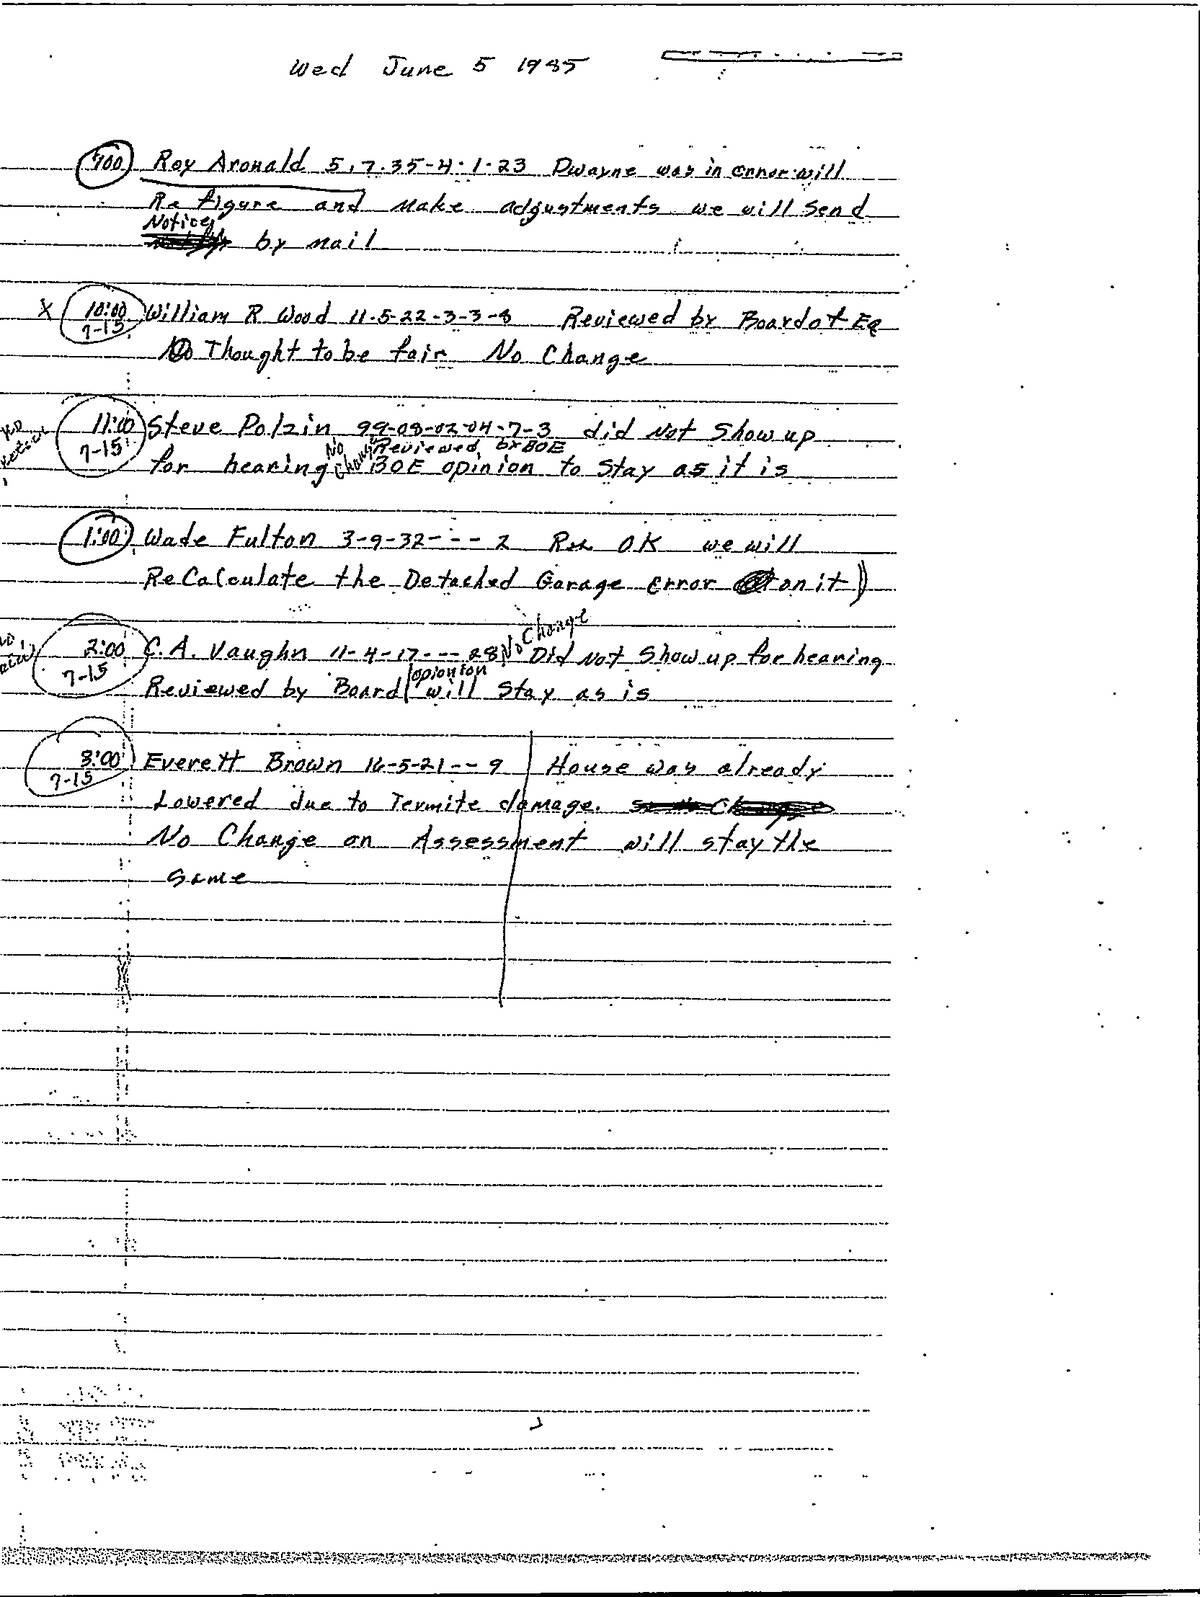 Wed June 5 1985
700 Roy Aronald 5.7.35-4.1.23 Dwayne was in error will
Re figure and make adjustments we will send
Notice
by mail
X 10:00 William R Wood 11-5-22-3-3-8 Reviewed by Board of Eq
7-15
No Thought to be fair No Change
11:00 Steve Polzin 99-08-02-04-7-3 did not show up
7-15 No Change Reviewed by BOE
for hearing BOE opinion to stay as it is
1:00 Wade Fulton 3-9-32---2 OK we will
ReCalculate the Detached Garage error on it)
No Change
2:00 C.A. Vaughn 11-4-17---28 Did not show up for hearing
7-15 opionion
Reviewed by Board will stay as is
3:00 Everett Brown 16-5-21--9 House was already
7-15
Lowered due to Termite damage.
No Change on Assessment will stay the
same